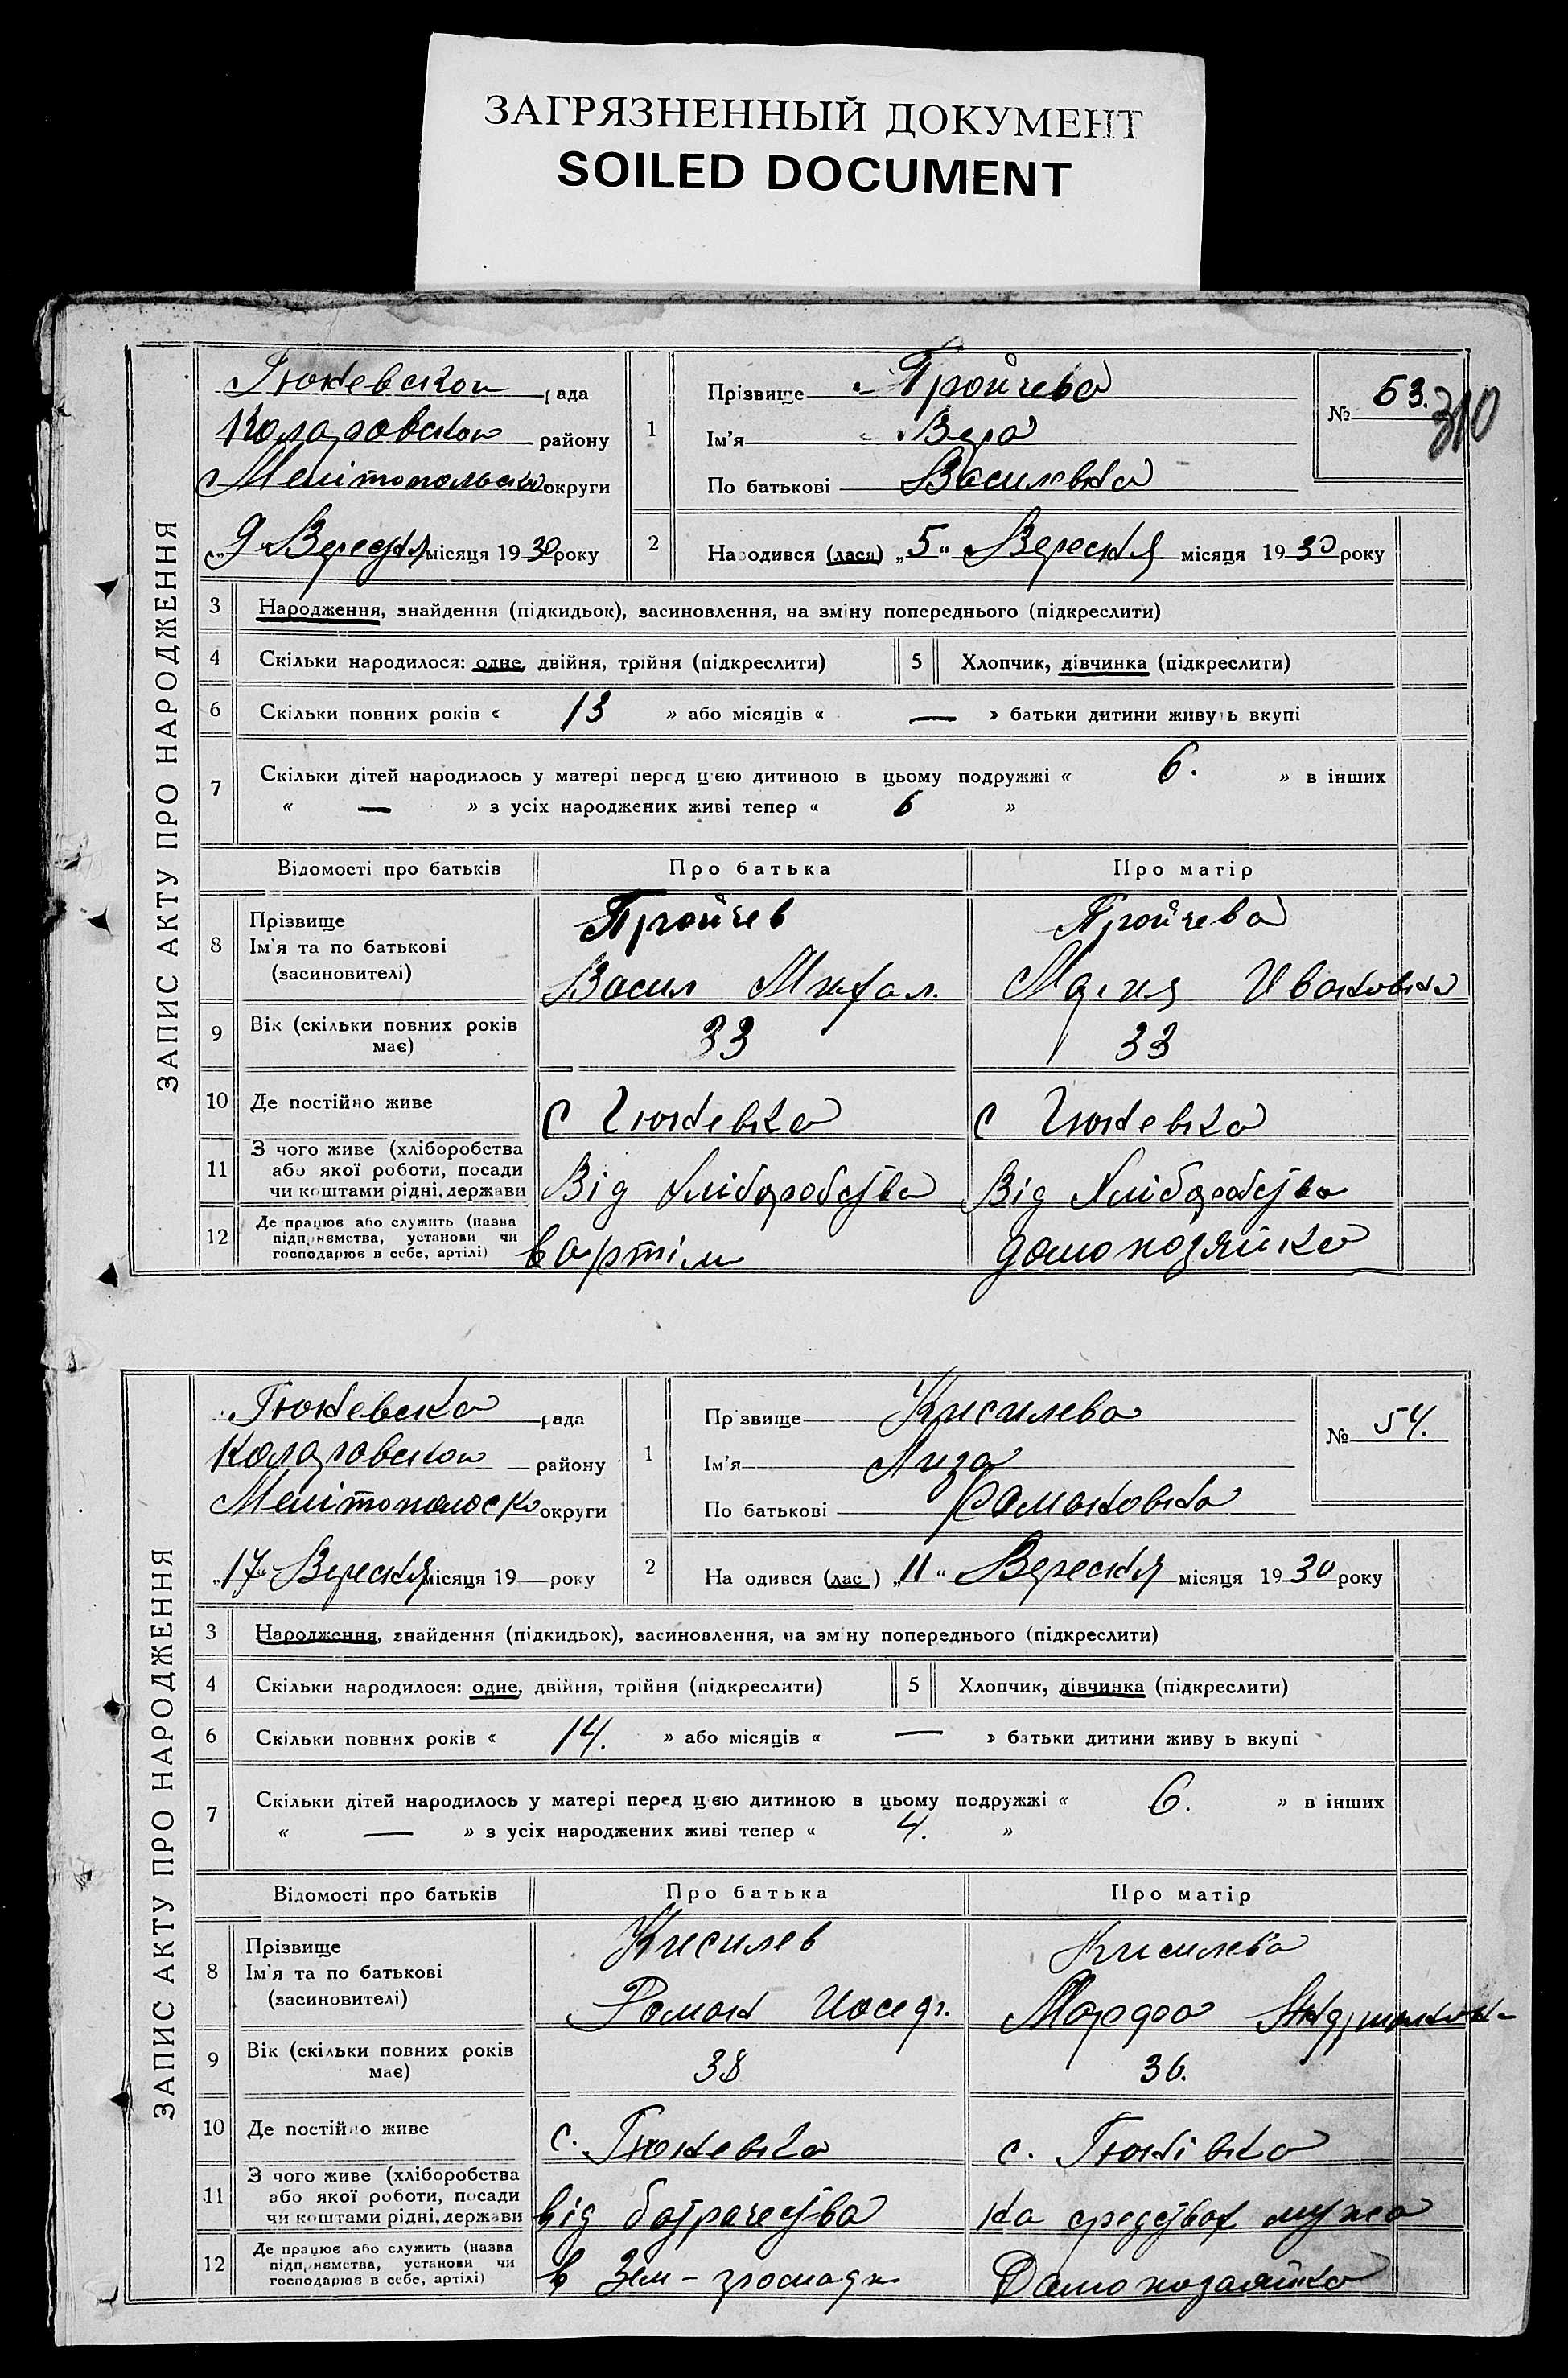 ЗАГРЯЗНЕННЫЙ ДОКУМЕНТ
SOILED DOCUMENT
ЗАПИС АКТУ ПРО НАРОДЖЕННЯ
Гюневской рада
Коларовской району
Мелітопольско округи
„9„ Вересня місяця 1930 року
1
Прізвище Тройчева
Ім'я Вера
По батькові Василевна
№ 53.
310
2
Народився (лася) „5" Вересня місяця 1930 року
3 Народження, знайдення (підкидьок), засиновлення, на зміну попереднього (підкреслити)
4 Скільки народилося: одне, двійня, трійня (підкреслити) 5 Хлопчик, дівчинка (підкреслити)
6 Скільки повних років « 13 » або місяців « — » батьки дитини живуть вкупі
7 Скільки дітей народилось у матері перед цією дитиною в цьому подружжі « 6. » в інших
« — » з усіх народжених живі тепер « 6 »
Відомості про батьків Про батька Про матір
8 Прізвище
Ім'я та по батькові
(засиновителі)
Тройчев
Васил Михал.
Тройчева
Мария Ивановна
9 Вік (скільки повних років
має)
33 33
10 Де постійно живе с Гюневка с Гюневка
11 З чого живе (хліборобства
або якої роботи, посади
чи коштами рідні, держави
Від хліборобства Від Хліборобства
12 Де працює або служить (назва
підприємства, установи чи
господарює в себе, артілі)
в артіли домохозяйка
ЗАПИС АКТУ ПРО НАРОДЖЕННЯ
Гюневска рада
Коларовской району
Мелітополоско округи
„17„ Вересня місяця 19— року
1
Прізвище Кисилева
Ім'я Лиза
По батькові Романовна
№ 54.
2
На одився (лас ) „11" Вересня місяця 1930 року
3 Народження, знайдення (підкидьок), засиновлення, на зміну попереднього (підкреслити)
4 Скільки народилося: одне, двійня, трійня (підкреслити) 5 Хлопчик, дівчинка (підкреслити)
6 Скільки повних років « 14. » або місяців « — » батьки дитини живу ь вкупі
7 Скільки дітей народилось у матері перед цією дитиною в цьому подружжі « 6. » в інших
« — » з усіх народжених живі тепер « 4. »
Відомості про батьків Про батька Про матір
8 Прізвище
Ім'я та по батькові
(засиновителі)
Кисилев
Роман Иосиф.
Кисилева
Марфа
9 Вік (скільки повних років
має)
38 36.
10 Де постійно живе с. Гюневка с. Гюнівка
11 З чого живе (хліборобства
або якої роботи, посади
чи коштами рідні, держави
від батрачества на средствах мужа
12 Де працює або служить (назва
підприємства, установи чи
господарює в себе, артілі)
в Зем-громади Домохозяйка